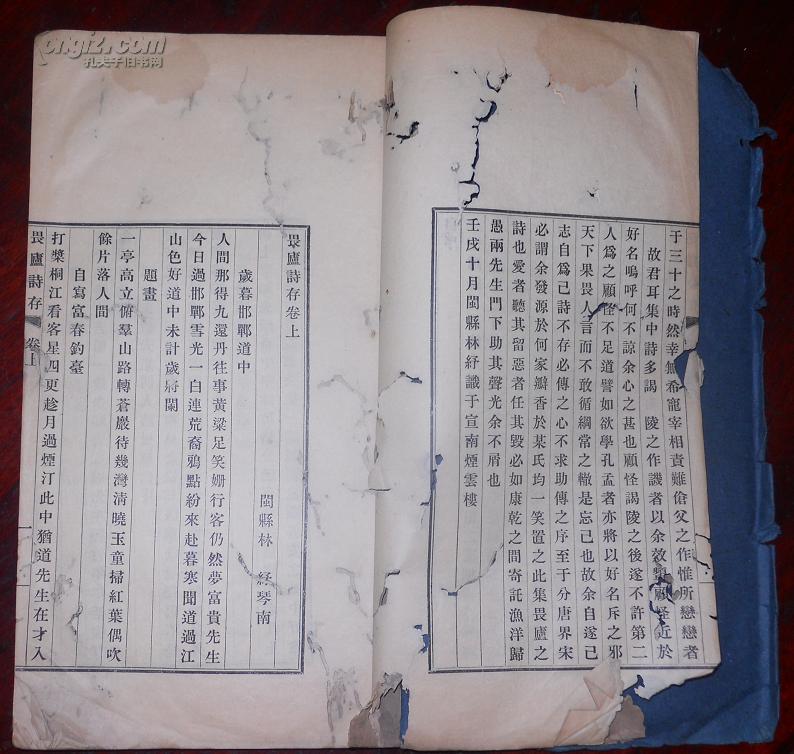 于三十之時然幸無希寵宰相責難傖父之作惟所戀戀者
故君耳集中詩多謁　陵之作譏者以余效顰顧怪近於
好名嗚呼何不諒余心之甚也顧怪謁陵之後遂不許第二
人為之顧怪不足道譬如欲學孔孟者亦將以好名斥之邪
天下果畏人言而不敢循綱常之轍是忘己也故余自遂己
志自為己詩不存必傳之心不求助傳之序至于分唐界宋
必謂余發源於何家瓣香於某氏均一笑置之此集畏廬之
詩也愛者聽其留惡者任其毀必如康乾之間寄託漁洋歸
愚兩先生門下助其聲光余不屑也
壬戌十月閩縣林紓識于宣南煙雲樓
畏廬詩存卷上
閩縣林　紓琴南
歲暮邯鄲道中
人間那得九還丹往事黃粱足笑姍行客仍然夢富貴先生
今日過邯鄲雪光一白連荒裔鴉點紛來赴暮寒聞道過江
山色好道中未計歲將闌
題畫
一亭高立俯羣山路轉蒼巖待幾灣清曉玉童掃紅葉偶吹
餘片落人間
自寫富春釣臺
打槳桐江看客星四更趁月過煙汀此中猶道先生在才入
畏廬詩存　卷上
一
kongfz.com
孔夫子旧书网